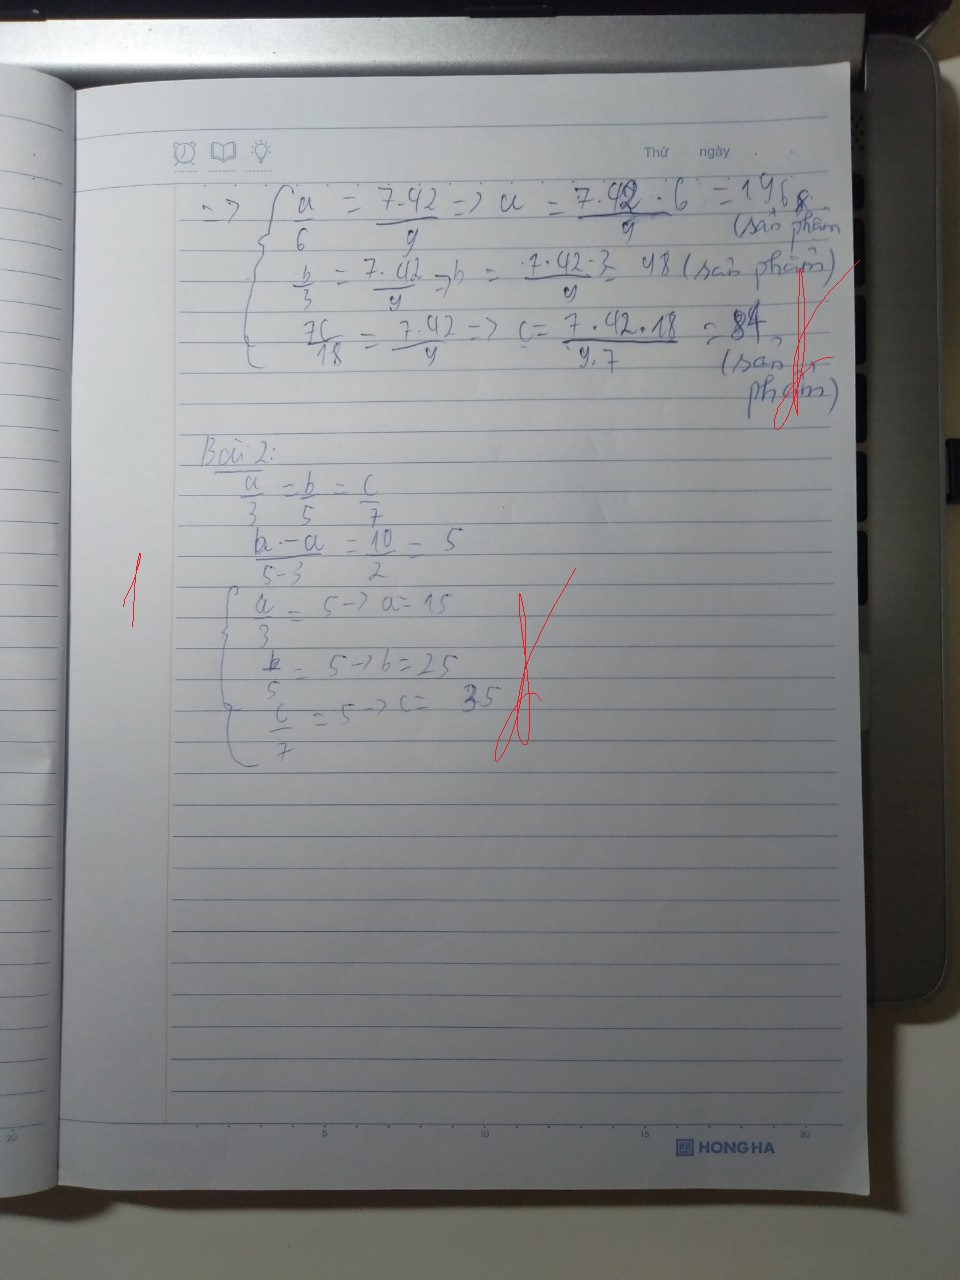 Thứ ngày
=> a/6 = 7.42/9 => a = 7.42.6/9 = 196 (sản phẩm)
b/3 = 7.42/9 => b = 7.42.3/9 = 98 (sản phẩm)
7c/18 = 7.42/9 => c = 7.42.18/9.7 = 84 (sản phẩm)
Bài 2:
a/3 = b/5 = c/7
b-a/5-3 = 10/2 = 5
1
a/3 = 5 -> a = 15
b/5 = 5 -> b = 25
c/7 = 5 -> c = 35
5 10 15 20
HONG HA
20